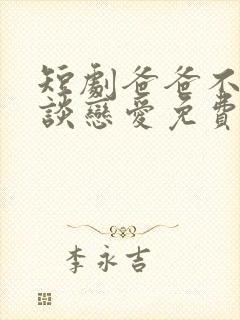 短劇爸爸不
談戀愛免費
李永吉